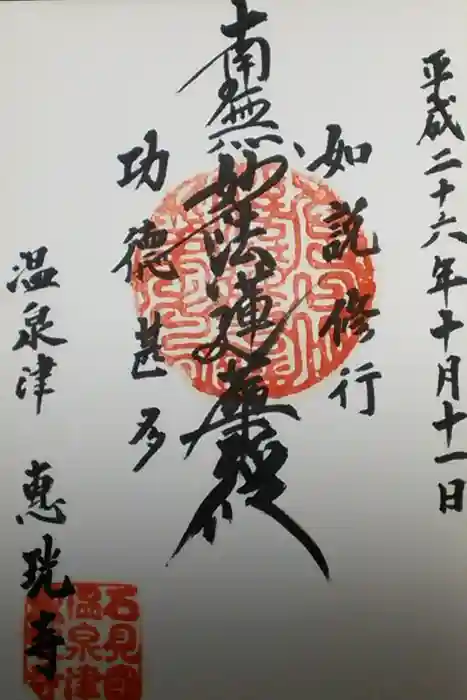 平成二十六年十月十一日
如説修行
南無妙法蓮華経
功徳甚多
温泉津 恵珖寺
石見國
温泉津